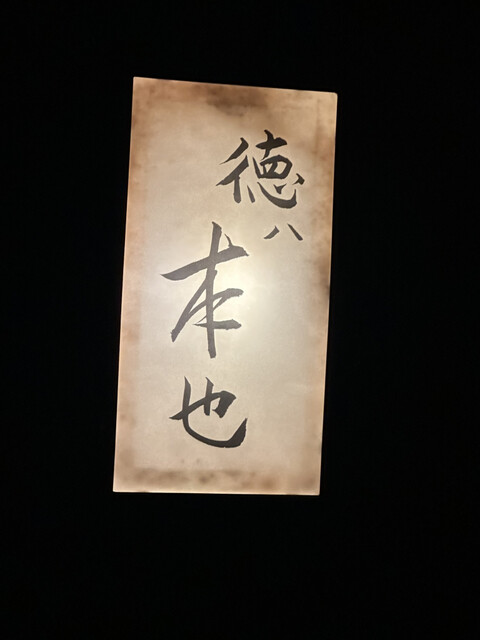 徳ハ
本也